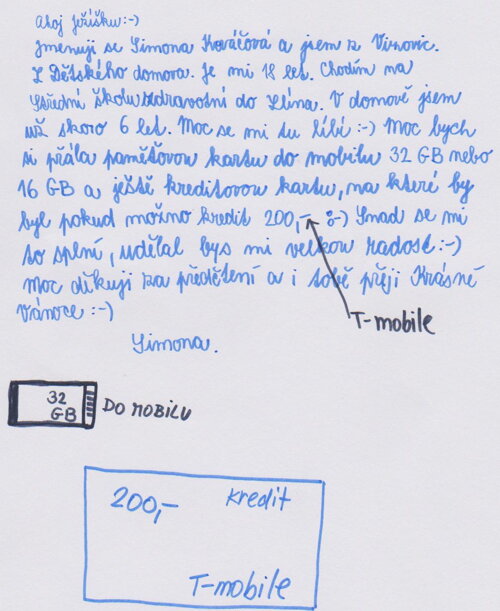 Ahoj Ježíšku:-)
Jmenuji se Simona Kováčová a jsem z Vizovic.
Z Dětského domova. Je mi 18 let. Chodím na
Střední školu zdravotní do Zlína. V domově jsem
už skoro 6 let. Moc se mi tu líbí :-) Moc bych
si přála paměťovou kartu do mobilu 32 GB nebo
16 GB a ještě kreditovou kartu, na které by
byl pokud možno kredit 200,- :-) Snad se mi
to splní, udělal bys mi velkou radost :-)
Moc děkuji za předtětení a i tobě přeji Krásné
Vánoce :-)
T-mobile
Simona.
32
GB
DO MOBILU
200,- kredit
T-mobile